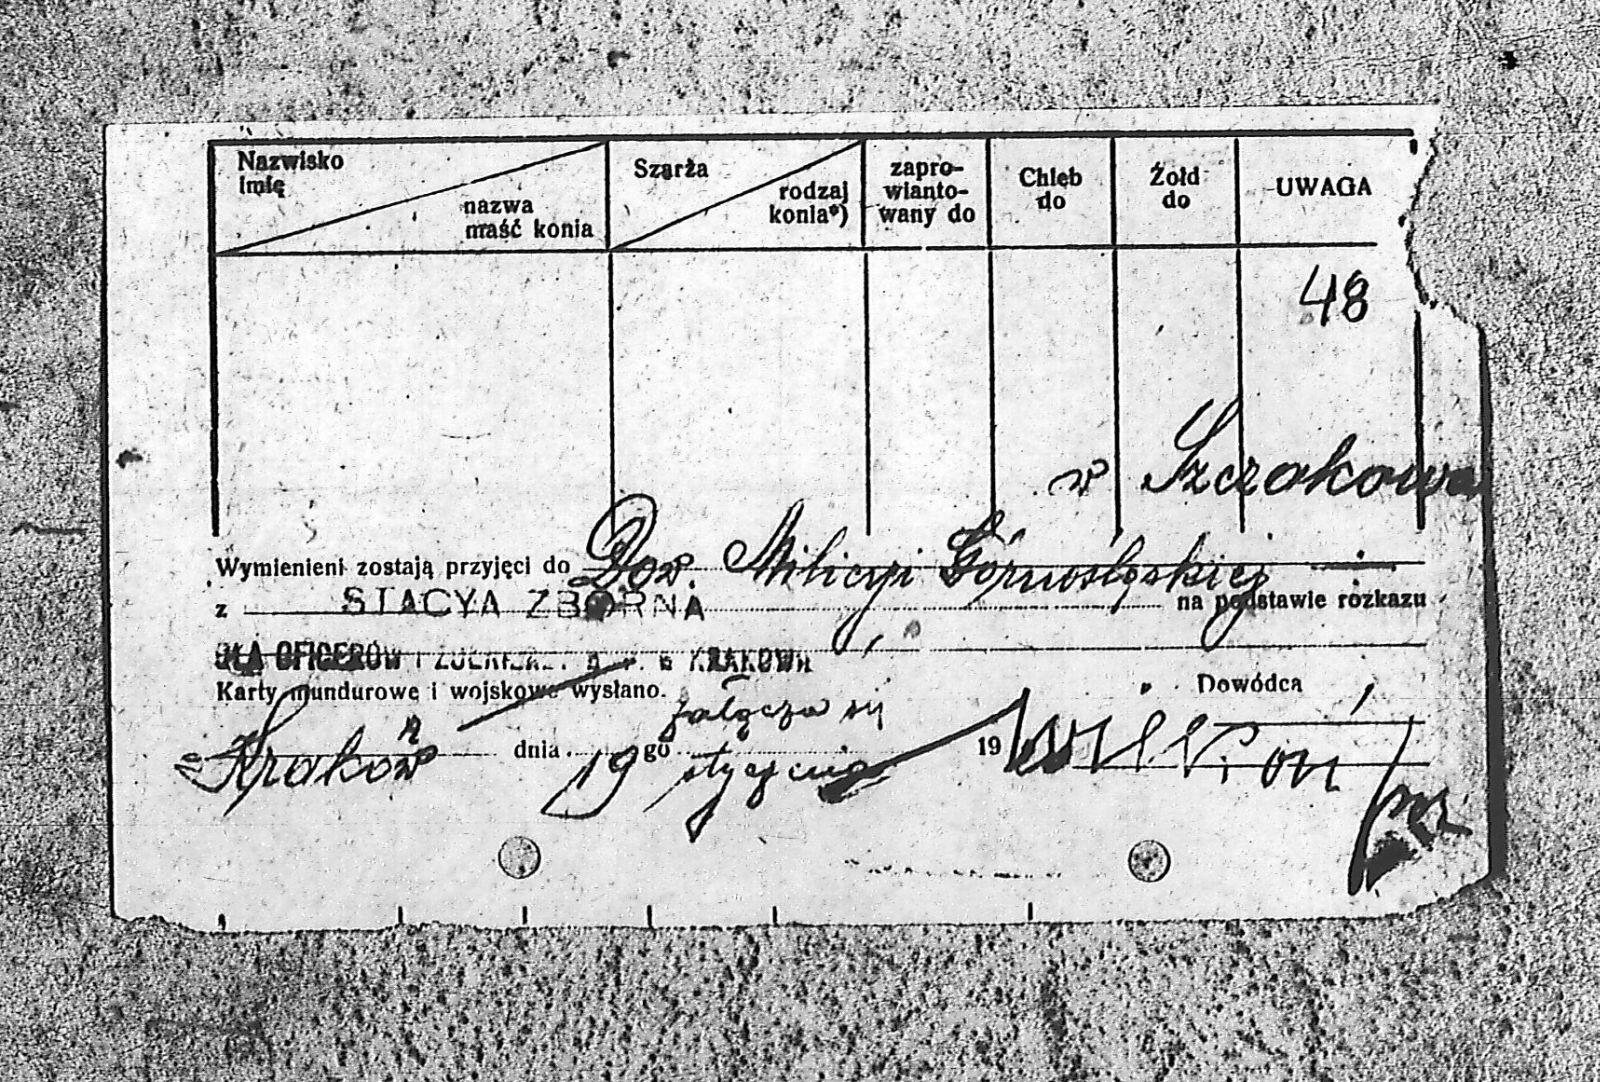 Nazwisko
imię
nazwa
maść konia
Szarża
rodzaj
konia*)
zapro-
wianto-
wany do
Chleb
do
Żołd
do
UWAGA
48
w Szczakowa
Wymienieni zostają przyjęci do Dow. Milicyi Górnośląskiej
z STACYA ZBORNA na podstawie rozkazu
DLA OFICERÓW I KRAKOWIE
Karty mundurowe i wojskowe wysłano. Dowódca
załącza się
Kraków dnia 19 go stycznia 19